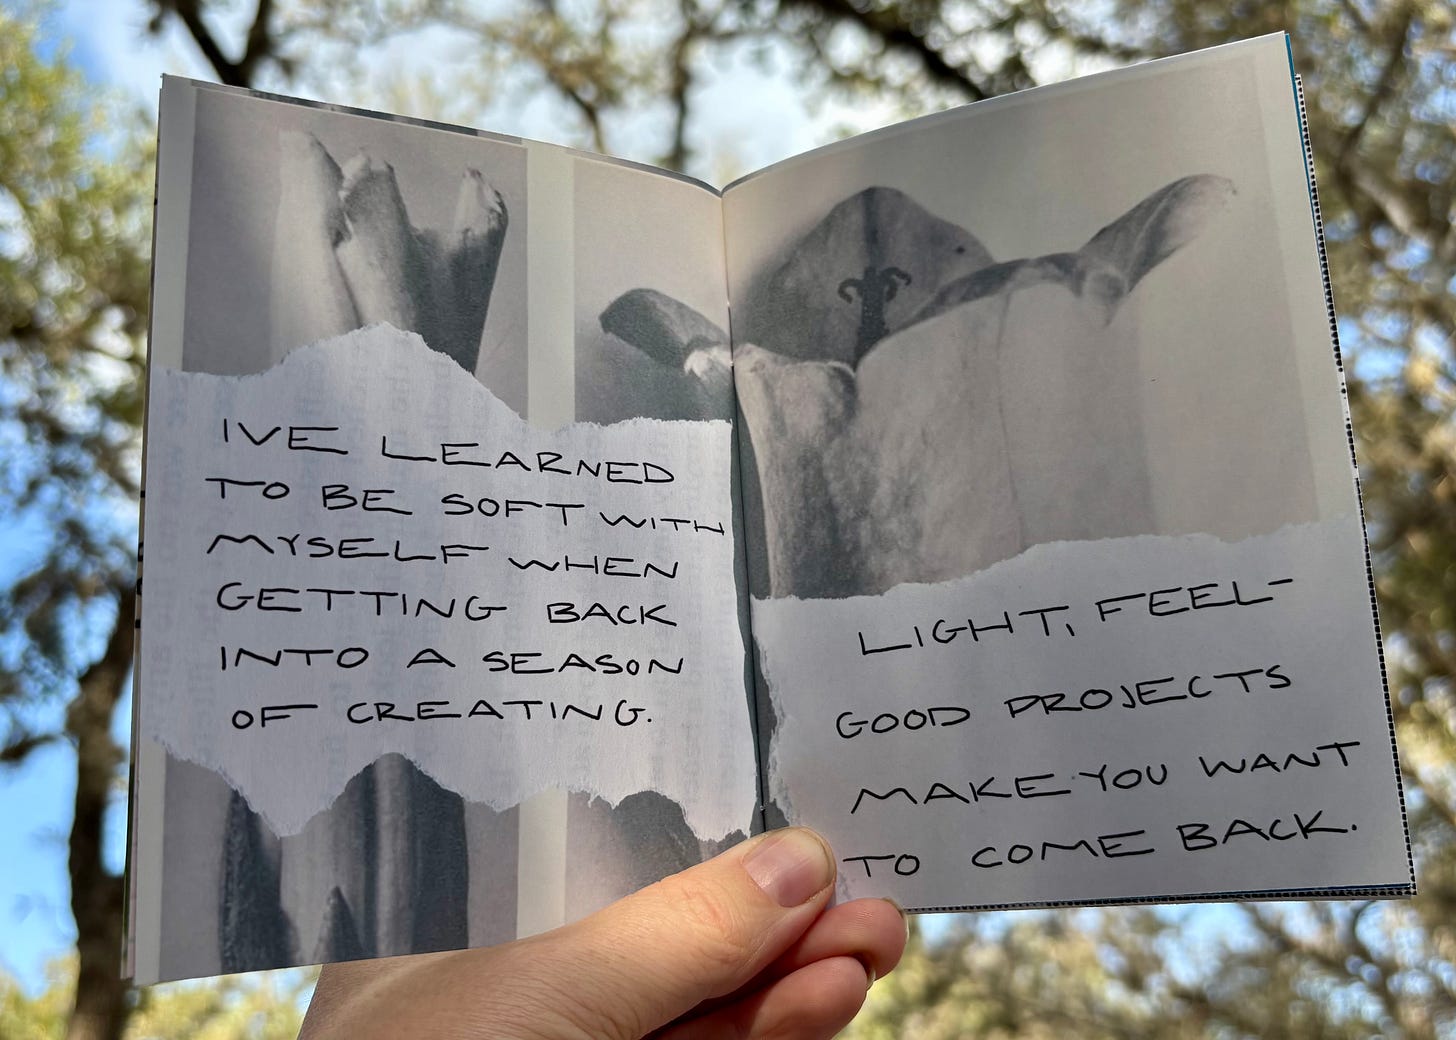 IVE LEARNED
TO BE SOFT WITH
MYSELF WHEN
GETTING BACK
INTO A SEASON
OF CREATING.
LIGHT, FEEL-
GOOD PROJECTS
MAKE YOU WANT
TO COME BACK.